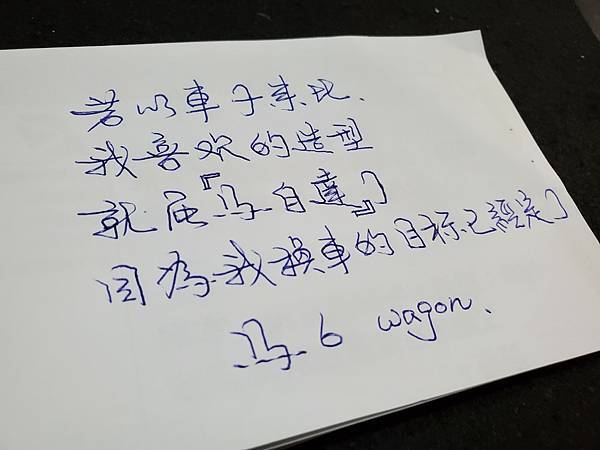 若以車子來比.
我喜欢的造型
就屈『马自達』了
因為我換車的目标已經定了
马6 wagon.